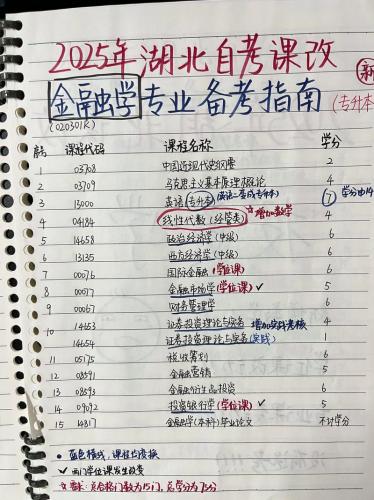 2025年湖北自考课改 新
金融学专业备考指南(专升本
(020301K)
序号 课程代码 课程名称 学分
1 03708 中国近现代史纲要 2
2 03709 马克思主义基本原理概论 4
3 13000 英语(专升本)(英语二变成专升本) 7 学分由14
4 04184 线性代数(经管类) 增加数学 4
5 14658 政治经济学(中级) 6
6 13135 西方经济学(中级) 6
7 00076 国际金融(学位课) 6
8 00077 金融市场学(学位课)✓ 5
9 00067 财务管理学 6
10 14653 证券投资理论与实务 增加实践考核 4
14654 证券投资理论与实务(实践) 1
11 05175 税收筹划 6
12 08591 金融营销 5
13 08593 金融衍生品投资 6
14 09092 投资银行学(学位课)✓ 5
15 14817 金融学(本科)毕业论文 不计学分
• 蓝色横线,课程均变换
✓ 两门学位课发生改变
要求:总考核门数为15门,总学分为73分